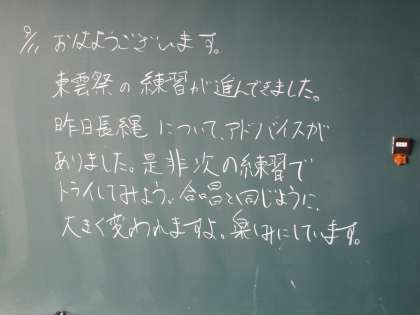 9/11 おはようございます。
東雲祭の練習が進んできました。
昨日長縄について、アドバイスが
ありました。是非次の練習で
トライしてみよう。合唱と同じように、
大きく変われますよ。楽しみにしています。